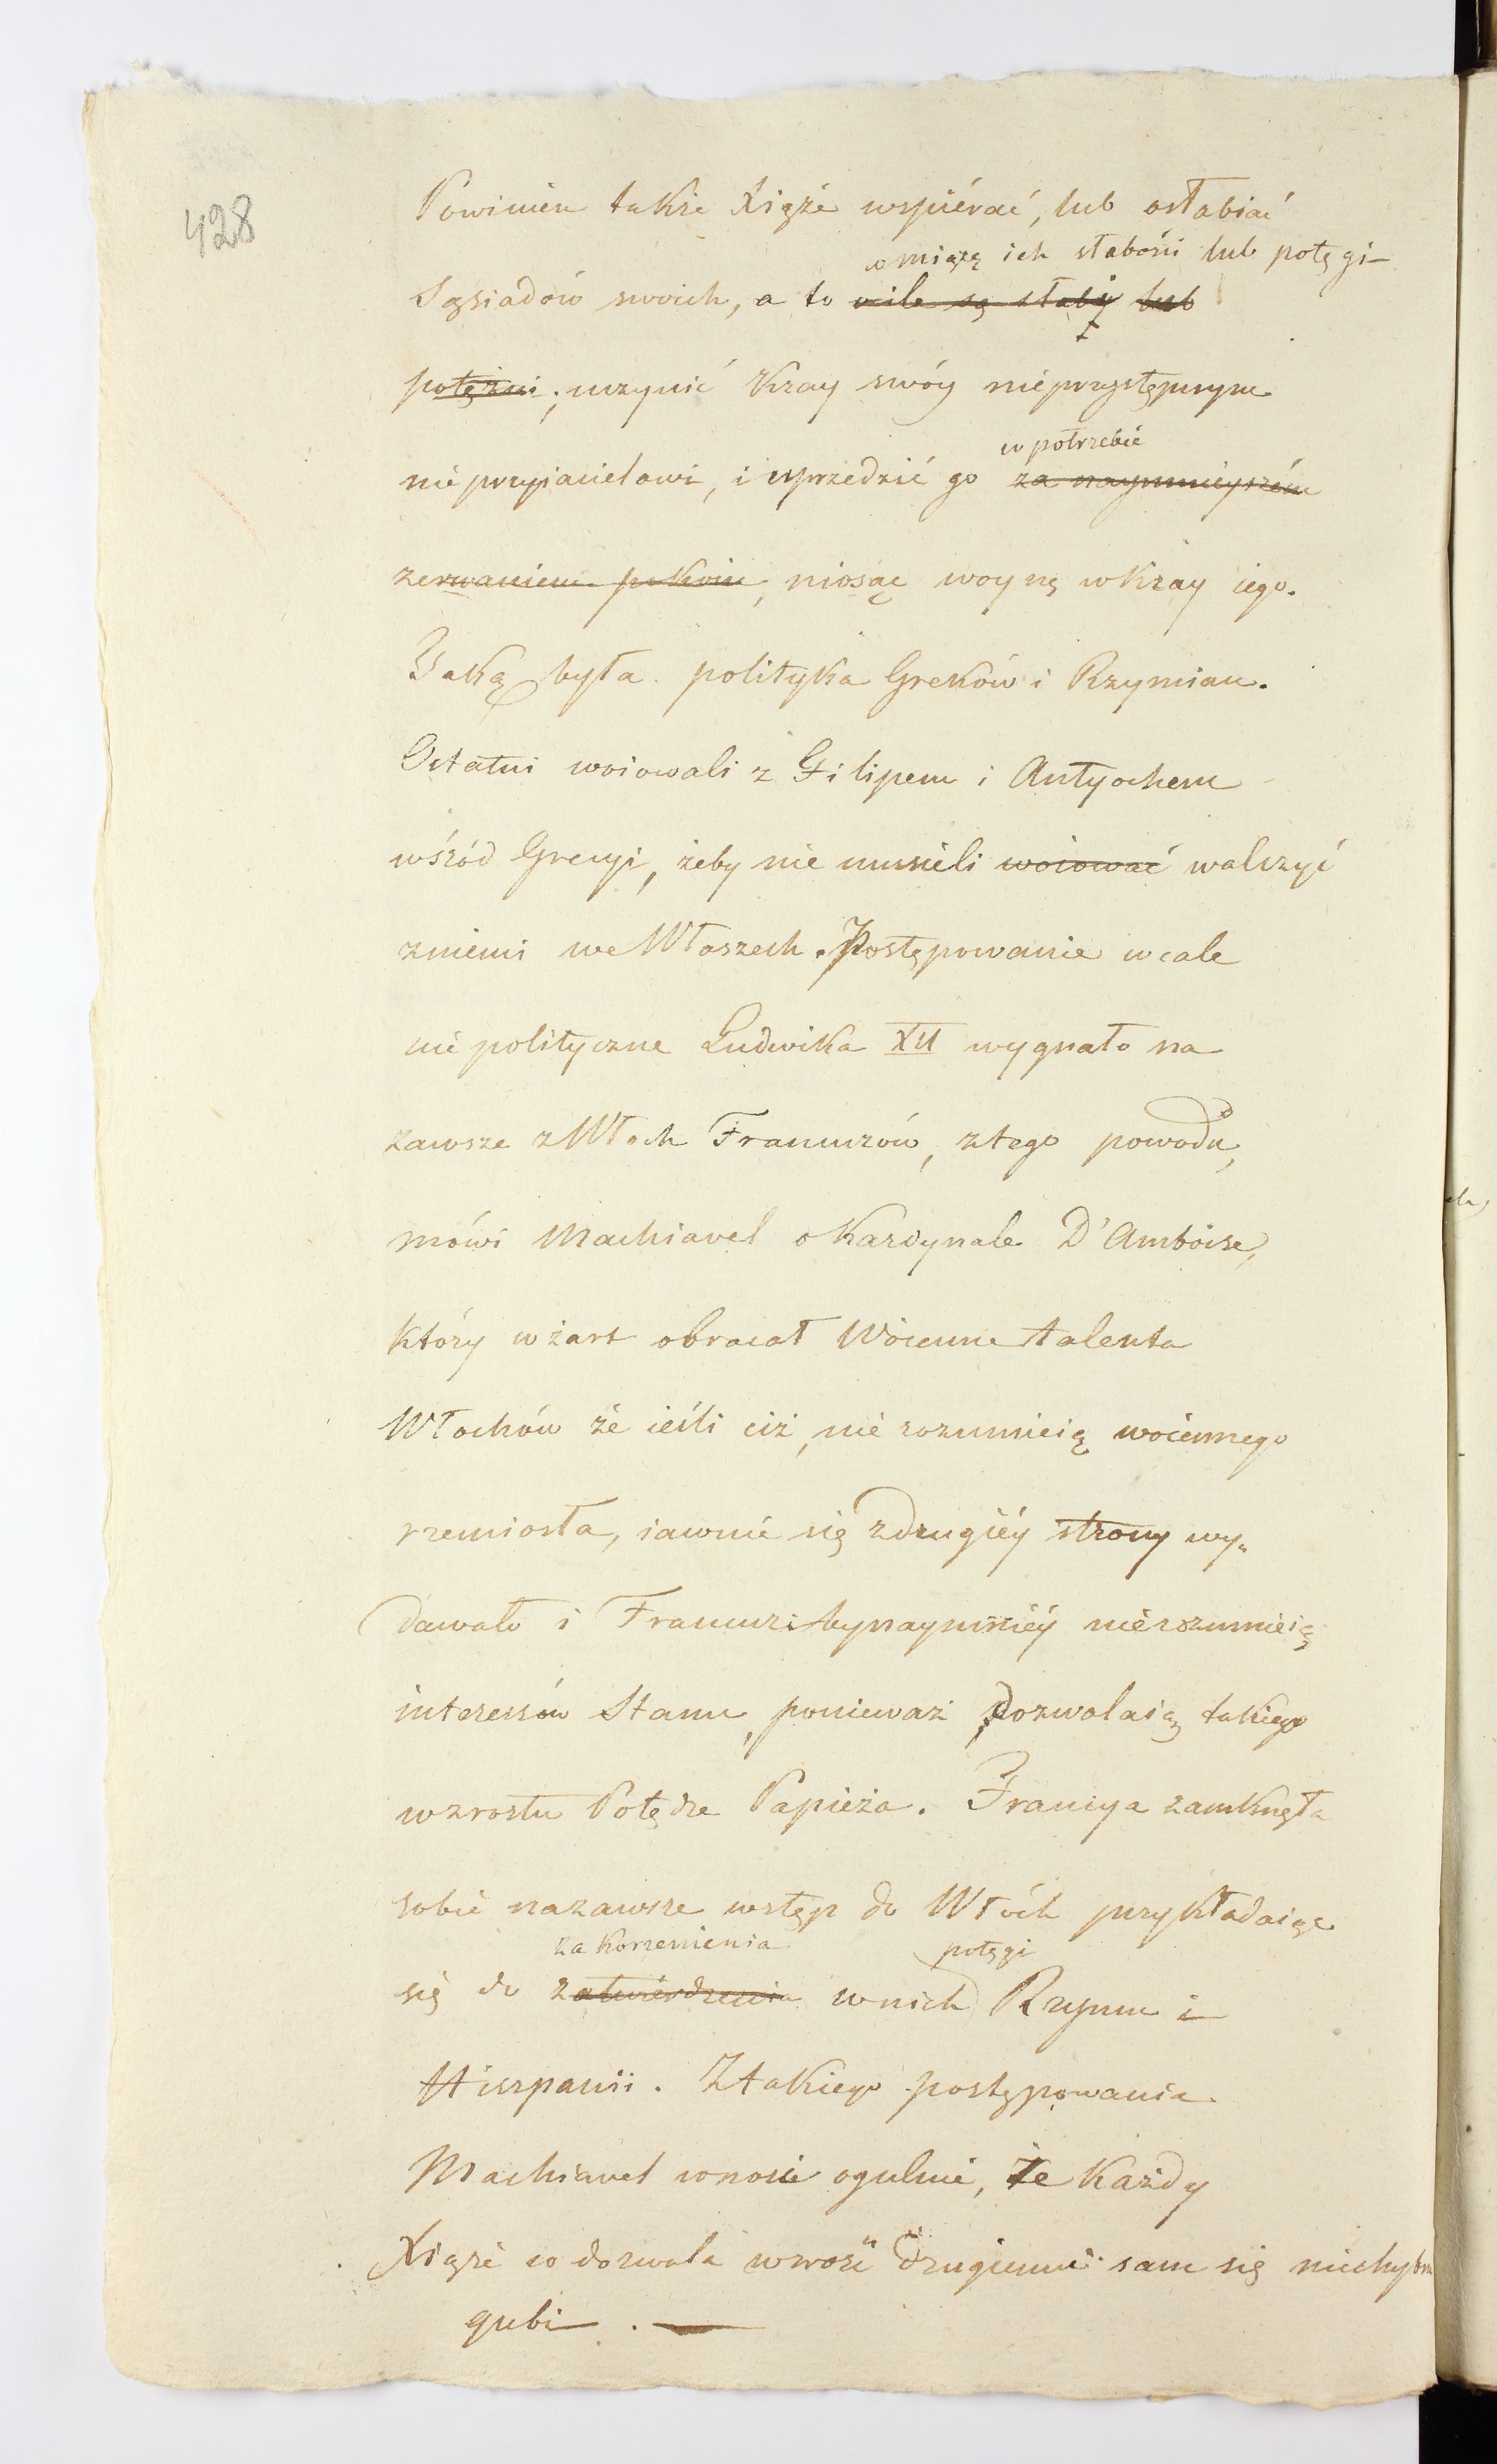 428
Powinien także Xiąże wspiérać, lub osłabiać
w miarę ich słabości lub potęgi
Sąsiadów swoich, a to o ile są słabi lub
potężni; uczynić Kray swóy nieprzystępnym
w potrzebie
nieprzyiacielowi, i uprzedzić go za naymnieyszém
zerwaniem pokoiu, niosąc woynę w Kray iego.
Taką była polityka Greków i Rzymian.
Ostatni woiowali z Filipem i Antyochem
wśród Grecyi, żeby nie musieli woiować walczyć
zniemi we Włoszech. Postępowanie wcale
nie polityczne Ludwika XII wygnało na
zawsze z Włoch Francuzów, ztego powodu,
mówi Machiavel o Kardynale D'Amboise,
który w żart obracał Woienne talenta
Włochów że ieśli ciż, nie rozumieią woiennego
rzemiosła, iawnie się zdrugiéy strony wy„
dawało i Francuzi bynaymniéy nierozumieią
interessów Stanu, ponieważ dozwalaią takiego
wzrostu Potędze Papieża. Francya zamknęła
sobie nazawsze wstęp do Włóch przykładaiąc
zakorzenienia potęgi
się do zatwierdzenia w nich Rzymu i
Hiszpanii. Ztakiego postępowania
Machiavel wnosi ogulnie, że Każdy
Xiąże co dozwala wzrość drugiemu sam się niechybnie
gubi. —